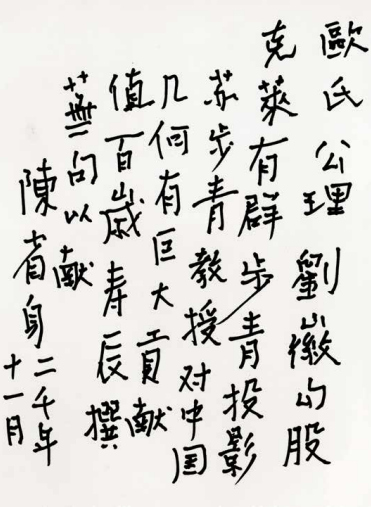 歐氏公理劉徽勾股
克萊有群步青投影
苏步青教授对中国
几何有巨大貢献
值百歲寿辰撰
蕪句以献
陳省身二千年
十一月